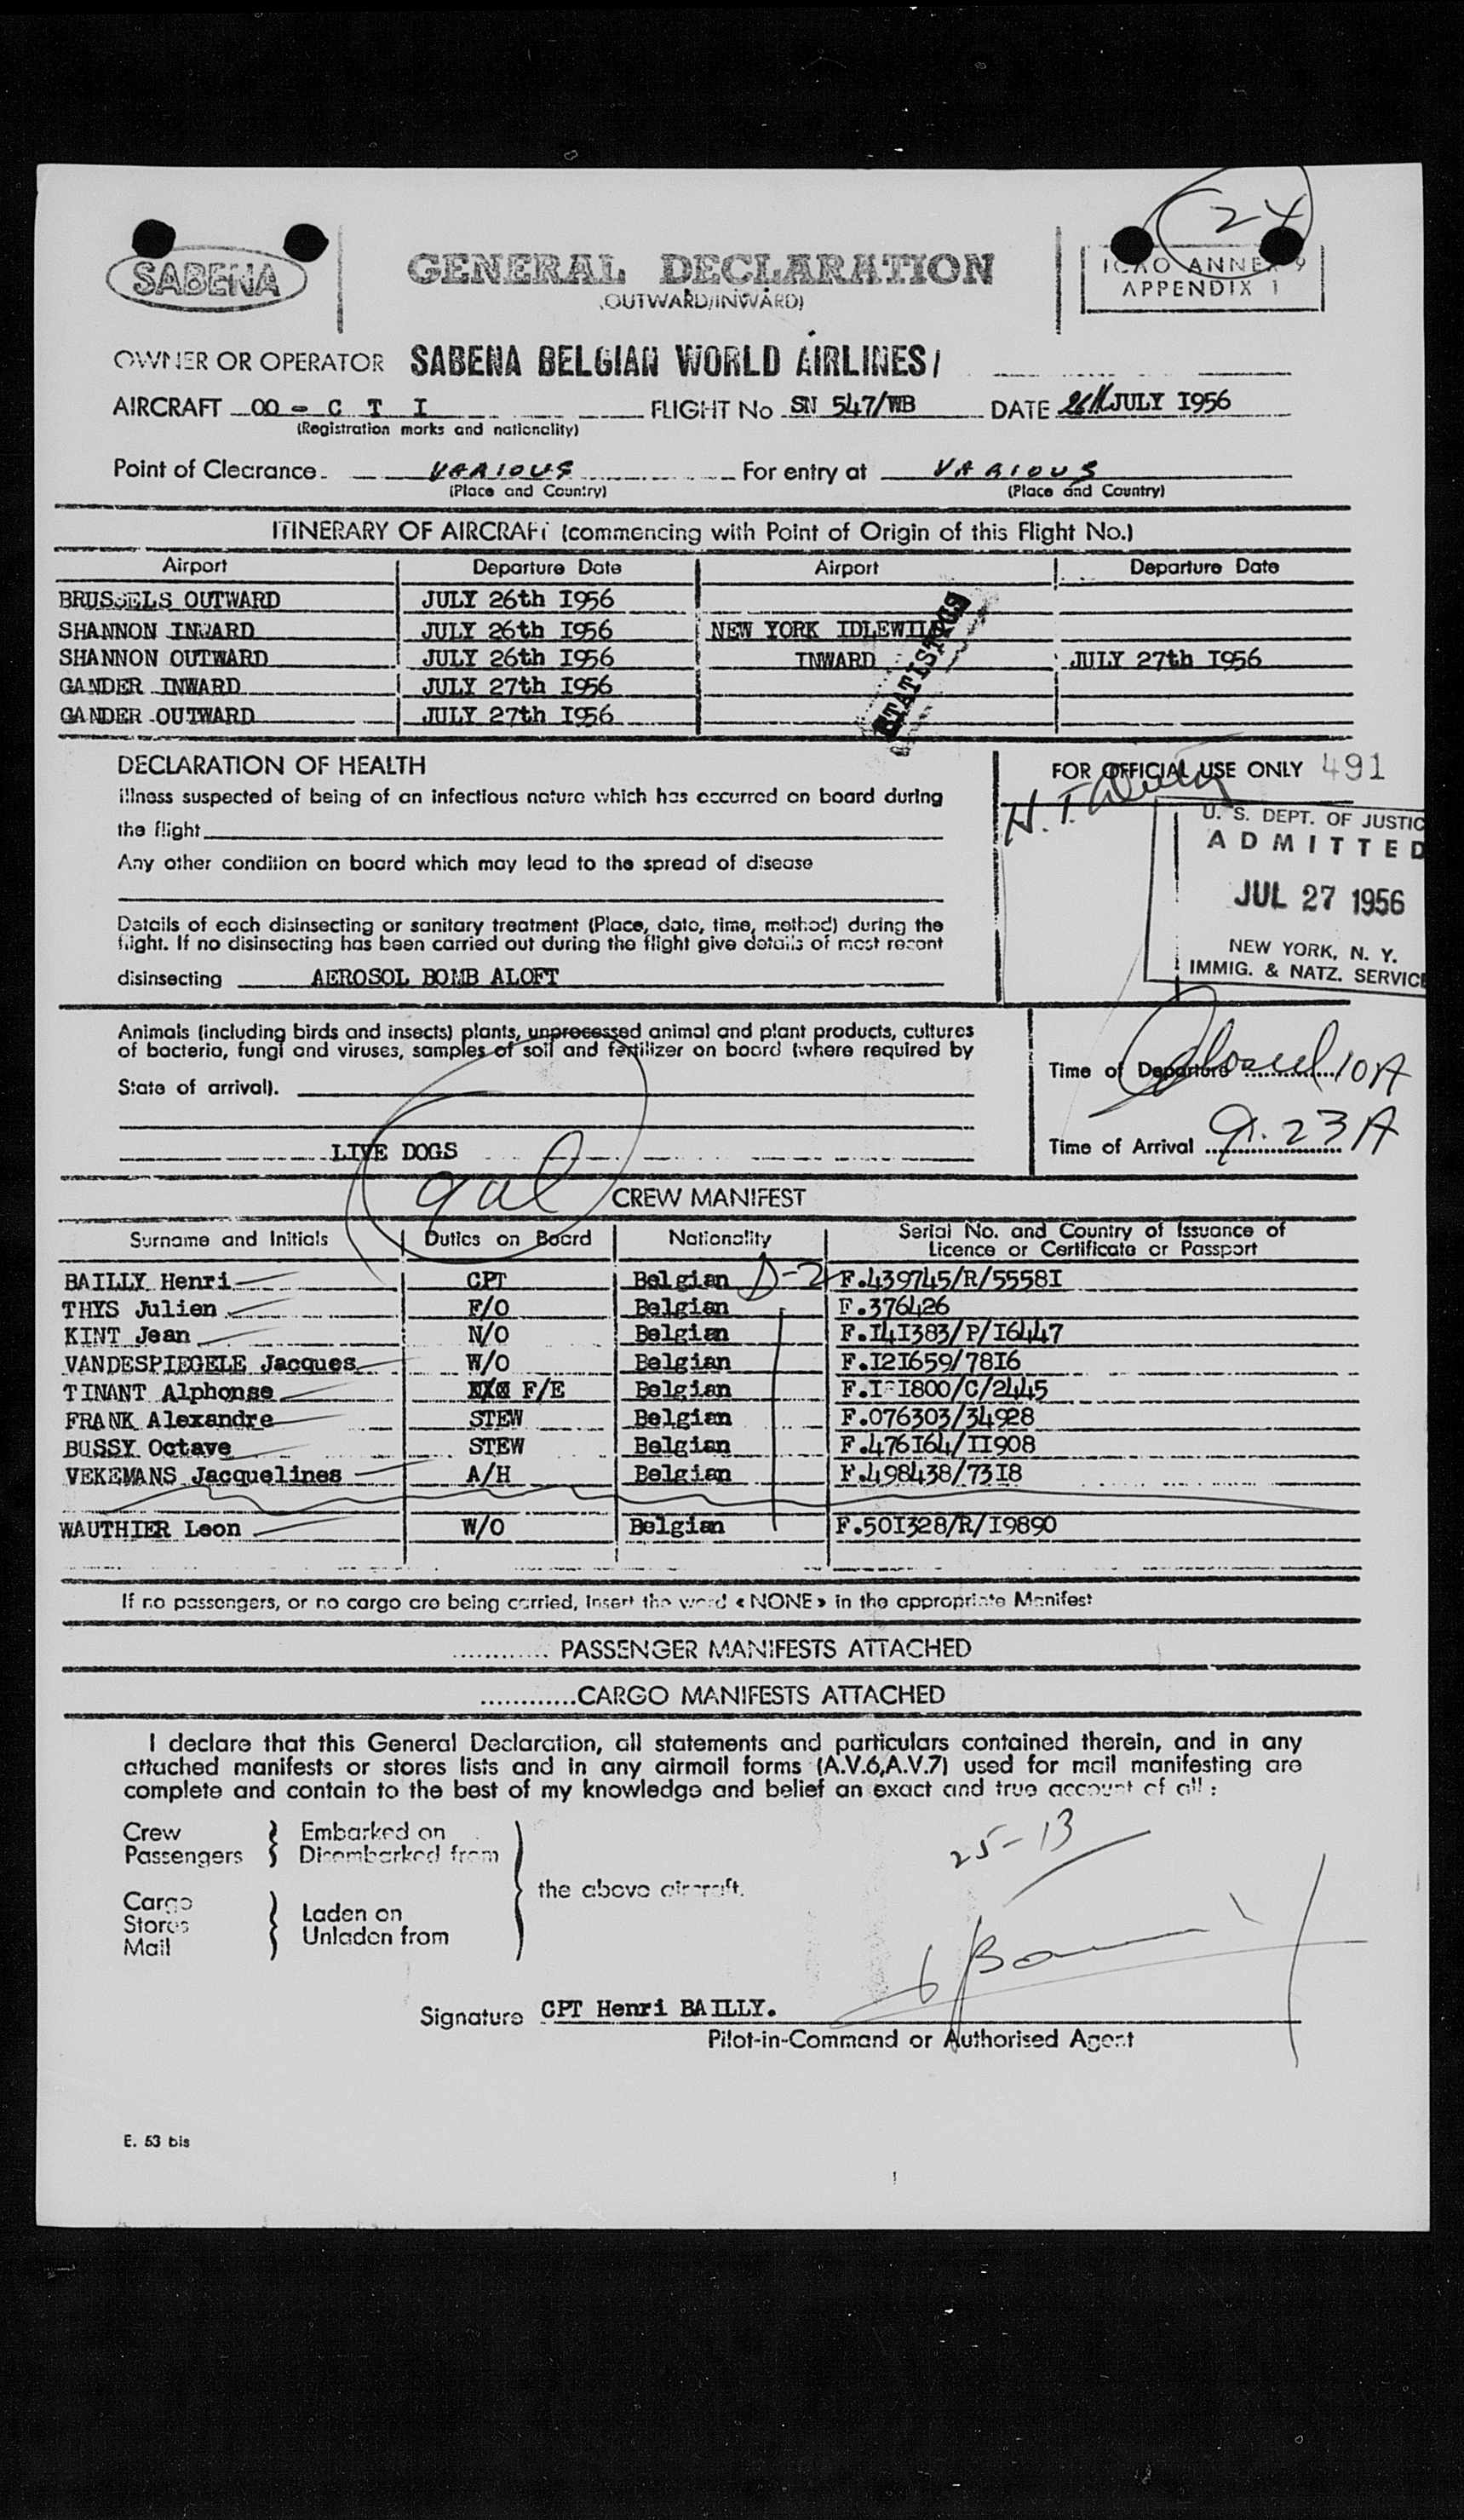 24
SABENA
GENERAL DECLARATION
(OUTWARD/INWARD)
ICAO ANNEX 9
APPENDIX 1
OWNER OR OPERATOR SABENA BELGIAN WORLD AIRLINES/
AIRCRAFT OO - C T I FLIGHT No SN 547/WB DATE 26th JULY I956
(Registration marks and nationality)
Point of Clearance VARIOUS For entry at VARIOUS
(Place and Country) (Place and Country)
ITINERARY OF AIRCRAFT (commencing with Point of Origin of this Flight No.)
Airport Departure Date Airport Departure Date
BRUSSELS OUTWARD JULY 26th I956
SHANNON INWARD JULY 26th I956 NEW YORK IDLEWILD
SHANNON OUTWARD JULY 26th I956 INWARD JULY 27th I956
GANDER INWARD JULY 27th I956
GANDER OUTWARD JULY 27th I956
STATISTICS
DECLARATION OF HEALTH
Illness suspected of being of an infectious nature which has occurred on board during
the flight
Any other condition on board which may lead to the spread of disease
Details of each disinsecting or sanitary treatment (Place, date, time, method) during the
flight. If no disinsecting has been carried out during the flight give details of most recent
disinsecting AEROSOL BOMB ALOFT
FOR OFFICIAL USE ONLY 491
H. T.
U. S. DEPT. OF JUSTIC
ADMITTED
JUL 27 1956
NEW YORK, N. Y.
IMMIG. & NATZ. SERVICE
Animals (including birds and insects) plants, unprocessed animal and plant products, cultures
of bacteria, fungi and viruses, samples of soil and fertilizer on board (where required by
State of arrival).
LIVE DOGS
Time of Departure 10A
Time of Arrival 9.23A
CREW MANIFEST
Surname and Initials Duties on Board Nationality Serial No. and Country of Issuance of
Licence or Certificate or Passport
BAILLY Henri CPT Belgian D-2 F.439745/R/5558I
THYS Julien F/O Belgian F.376426
KINT Jean N/O Belgian F.I4I383/P/I6447
VANDESPIEGELE Jacques W/O Belgian F.I2I659/78I6
TINANT Alphonse F/E Belgian
FRANK Alexandre STEW Belgian F.076303/34928
BUSSY Octave STEW Belgian F.476I64/II908
VEKEMANS Jacquelines A/H Belgian F.498438/73I8
WAUTHIER Leon W/O Belgian F.50I328/R/I9890
If no passengers, or no cargo are being carried, insert the word «NONE» in the appropriate Manifest
............ PASSENGER MANIFESTS ATTACHED
............CARGO MANIFESTS ATTACHED
I declare that this General Declaration, all statements and particulars contained therein, and in any
attached manifests or stores lists and in any airmail forms (A.V.6,A.V.7) used for mail manifesting are
complete and contain to the best of my knowledge and belief an exact and true account of all :
Crew
Passengers
Embarked on
Disembarked from
Cargo
Stores
Mail
Laden on
Unladen from
the above aircraft.
25-13
Signature CPT Henri BAILLY.
Pilot-in-Command or Authorised Agent
E. 53 bis